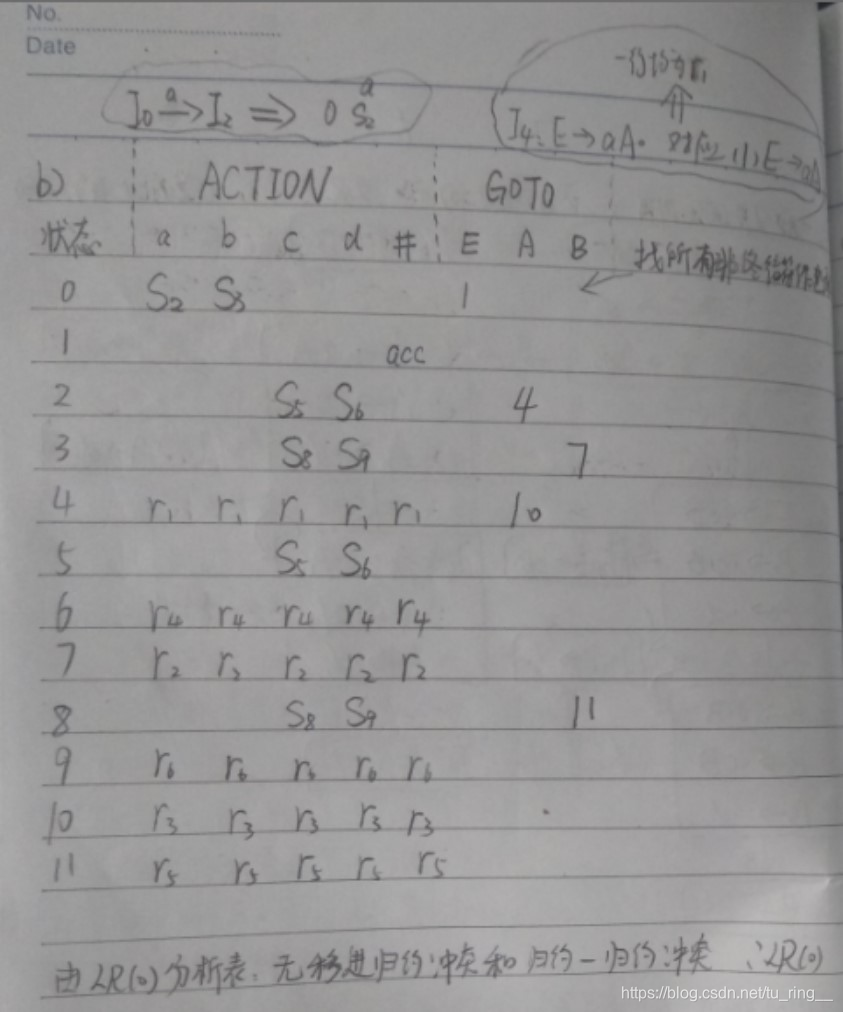 No.
Date
I₀ —a→ I₂ ⟹ 0 S₂ a
归约为r₁
⇑
I₄: E→aA· 对应(1)E→aA
b) ACTION GOTO
状态 a b c d # E A B 找所有非终结符
0 S₂ S₃ 1
1 acc
2 S₅ S₆ 4
3 S₈ S₉ 7
4 r₁ r₁ r₁ r₁ r₁ 10
5 S₅ S₆
6 r₄ r₄ r₄ r₄ r₄
7 r₂ r₂ r₂ r₂ r₂
8 S₈ S₉ 11
9 r₆ r₆ r₆ r₆ r₆
10 r₃ r₃ r₃ r₃ r₃
11 r₅ r₅ r₅ r₅ r₅
由LR(0)分析表,无移进归约冲突和归约-归约冲突 ∴LR(0)
https://blog.csdn.net/tu_ring__